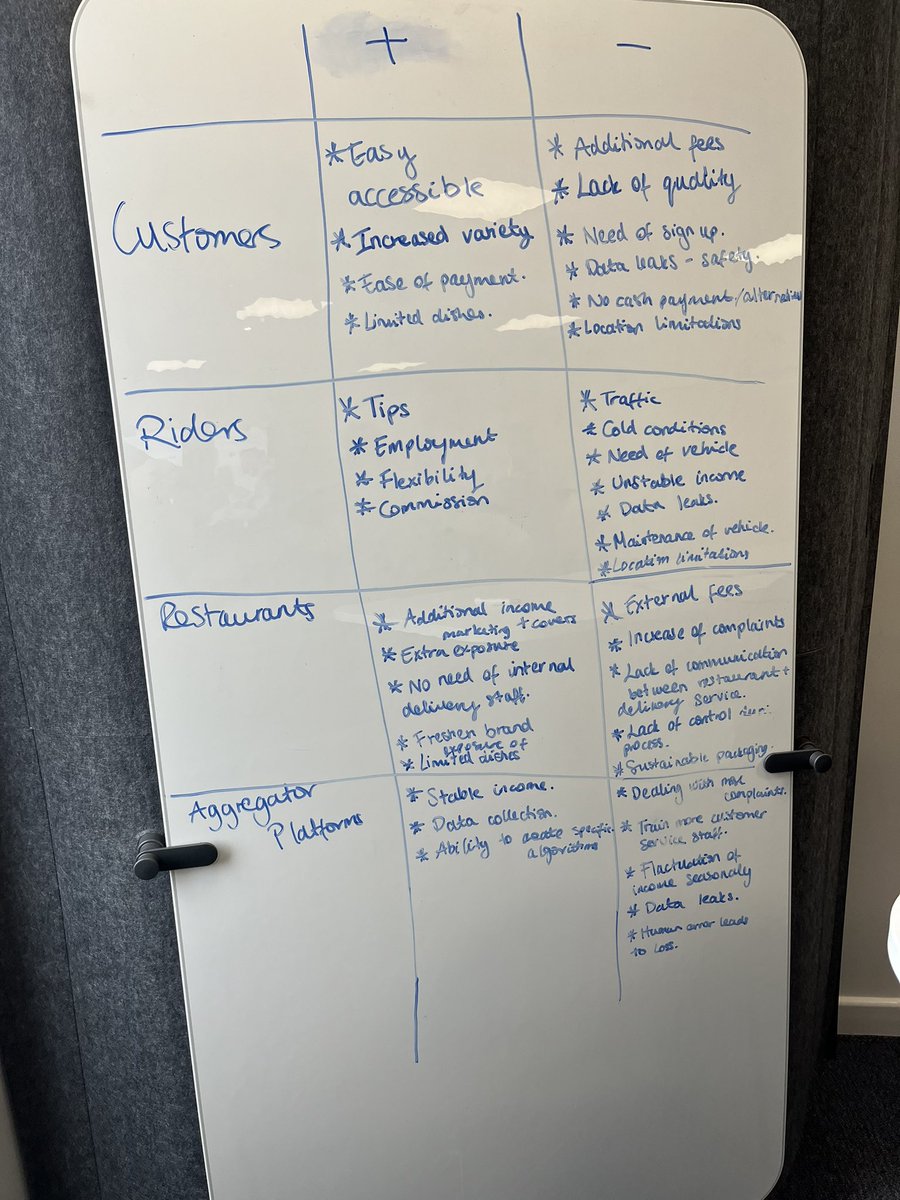 +
-
Customers
* Easy
accessible
* Increased variety
* Ease of payment.
* Limited dishes.
* Additional fees
* Lack of quality
* Need of sign up.
* Data leaks - safety.
* No cash payment/alternative
* Location limitations
Riders
* Tips
* Employment
* Flexibility
* Commission
* Traffic
* Cold conditions
* Need of vehicle
* Unstable income
* Data leaks.
* Maintenance of vehicle.
* Location limitations
Restaurants
* Additional income
marketing + covers
* Extra exposure
* No need of internal
delivery staff.
* Freshen brand
exposure of
* Limited dishes
* External fees
* Increase of complaints
* Lack of communication
between restaurant +
delivery service.
* Lack of control
process.
* Sustainable packaging.
Aggregator
Platforms
* Stable income.
* Data collection.
* Ability to create specific
algorithms
* Dealing with more
complaints.
* Train more customer
service staff.
* Fluctuation of
income seasonaly
* Data leaks.
* Human error leads
to loss.